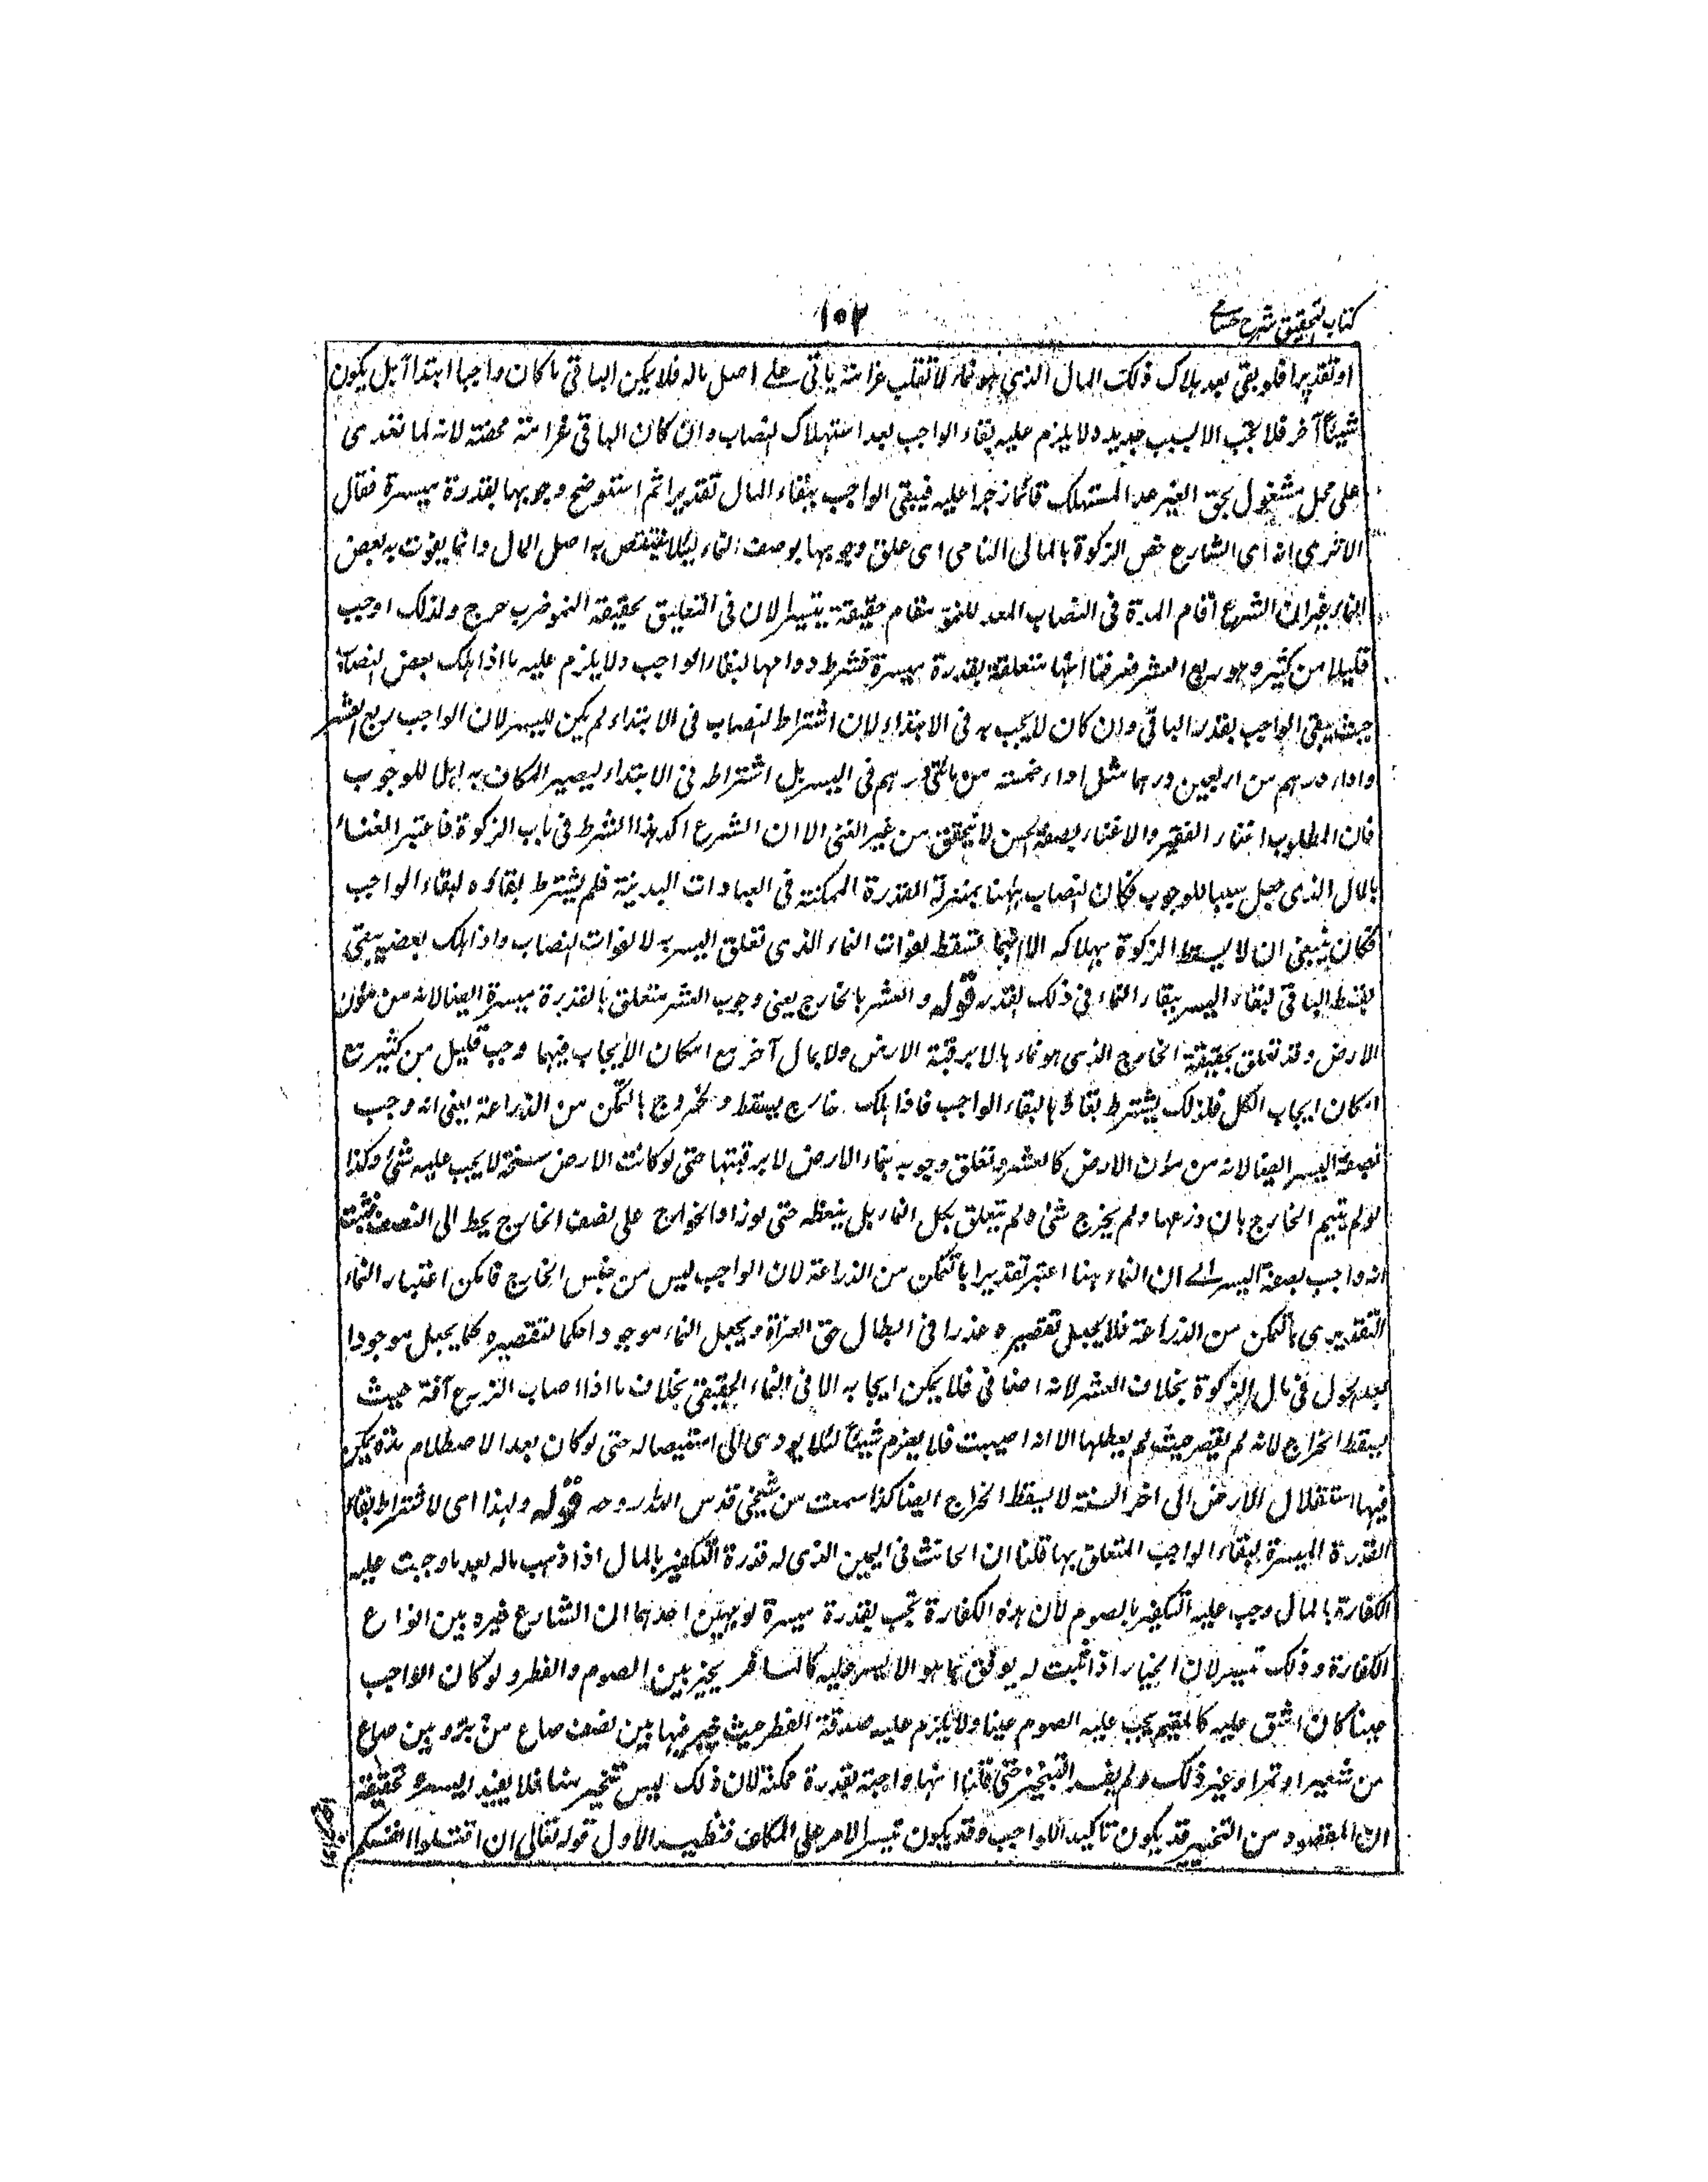 كتاب التحقيق شرح حسامي
١٠٢
او تقديرا فلو بقى بعد هلاك ذلك المال الذي هو نماء لانقلب غرامة يأتى على اصل ماله فلا يكون الباقى ما كان واجبا ابتداء بل يكون
شيئا آخر فلا يجب الا بسبب جديد ولا يلزم عليه بقاء الواجب بعد استهلاك النصاب وان كان الباقى غرامة محضة لانه لما تعدى
على محل مشغول بحق الغير عد المستهلك قائما زجرا عليه فيبقى الواجب ببقاء المال تقديرا ثم استوضح وجوبها بقدرة ميسرة فقال
الا ترى انه اى الشارع خص الزكوة بالمال النامى اى علق وجوبها بوصف النماء لئلا ينتقص به اصل المال وانما يفوت به بعض
النماء غير ان الشرع اقام المدة فى النصاب المعد للنمو مقام حقيقة تيسيرا لان فى التعليق بحقيقة النمو ضرب حرج ولذلك اوجب
قليلا من كثير وهو ربع العشر فعرفنا انها متعلقة بقدرة ميسرة فشرط دوامها لبقاء الواجب ولا يلزم عليه ما اذا هلك بعض النصاب
حيث يبقى الواجب بقدر الباقى وان كان لا يجب به فى الابتداء لان اشتراط النصاب فى الابتداء لم يكن لليسر لان الواجب ربع العشر
واداء درهم من اربعين درهما مثل اداء خمسة من مائتى درهم فى اليسر بل اشتراطه فى الابتداء ليصير المكلف به اهلا للوجوب
فان المطلوب اغناء الفقير والاغناء بصفة الحسن لا يتحقق من غير الغنى الا ان الشرع اكد هذا الشرط فى باب الزكوة فاعتبر الغناء
بالمال الذى جعل سببا للوجوب فكان النصاب ههنا بمنزلة القدرة الممكنة فى العبادات البدنية فلم يشترط بقاؤه لبقاء الواجب
فكان ينبغى ان لا يسقط الزكوة بهلاكه الا انها تسقط لفوات النماء الذى تعلق اليسر به لا لفوات النصاب واذا هلك بعضه يبقى
بقسط الباقى لبقاء اليسر ببقاء النماء فى ذلك بقدره قوله والعشر بالخارج يعنى وجوب العشر متعلق بالقدرة ميسرة ايضا لانه من مؤن
الارض وقد تعلق بحقيقة الخارج الذى هو نماءها لا برقبة الارض ولا بمال آخر مع امكان الايجاب فيهما وجب قليل من كثير مع
امكان ايجاب الكل فلذلك يشترط بقاؤها لبقاء الواجب فاذا هلك خارج يسقط والخروج بالتمكن من الزراعة يعنى انه وجب
بصفة اليسر ايضا لانه من مؤن الارض كالعشر وتعلق وجوبه بنماء الارض لا برقبتها حتى لو كانت الارض سبخة لا يجب عليه شئ وكذا
لو لم يتيم الخارج بان زرعها ولم يخرج شئ ولم يتعلق بكل النماء بل ببعضه حتى لو زاد الخراج على نصف الخارج يحط الى النصف فثبت
انه واجب بصفة اليسر الى ان النماء هنا اعتبر تقديرا بالتمكن من الزراعة لان الواجب ليس من جنس الخارج فامكن اعتبار النماء
التقديرى بالتمكن من الزراعة فلا يجعل تقصيره عذرا فى ابطال حق الغزاة ويجعل النماء موجودا حكما لتقصيره كما يجعل موجودا
بعد الحول فى مال الزكوة بخلاف العشر لانه اضافى فلا يمكن ايجابه الا فى النماء الحقيقى بخلاف ما اذا اصاب الزرع آفة حيث
يسقط الخراج لانه لم يقصر حيث لم يعطلها الا انه اصيبت فلا يغرم شيئا لئلا يودى الى استيصاله حتى لو كان بعد الاصطلام مدة يمكن
فيها استغلال الارض الى اخر السنة لا يسقط الخراج ايضا كذا سمعت من شيخى قدس الله روحه قوله ولهذا اى لاشتراط بقاء
القدرة الميسرة لبقاء الواجب المتعلق بها قلنا ان الحانث فى اليمين الذى له قدرة التكفير بالمال اذا ذهب ماله بعد ما وجبت عليه
الكفارة بالمال وجب عليه التكفير بالصوم لأن هذه الكفارة تجب بقدرة ميسرة لوجهين احدهما ان الشارع خيره بين انواع
الكفارة وذلك تيسير لان الخيار اذا ثبت له يوفق بما هو الايسر عليه كالمسافر يخير بين الصوم والفطر ولو كان الواجب
عينا كان اشق عليه كالمقيم يجب عليه الصوم عينا ولا يلزم عليه صدقة الفطر حيث خير فيها بين نصف صاع من بر وبين صاع
من شعير او تمر او غير ذلك ولم يفد التخيير حتى قلنا انها واجبة بقدرة ممكنة لان ذلك ليس تخيير معنا فلا يفيد اليسر وتحقيقه
ان المقصود من التخيير قد يكون تاكيد الواجب وقد يكون تيسير الامر على المكلف فنظير الأول قوله تعالى ان اقتلوا انفسكم